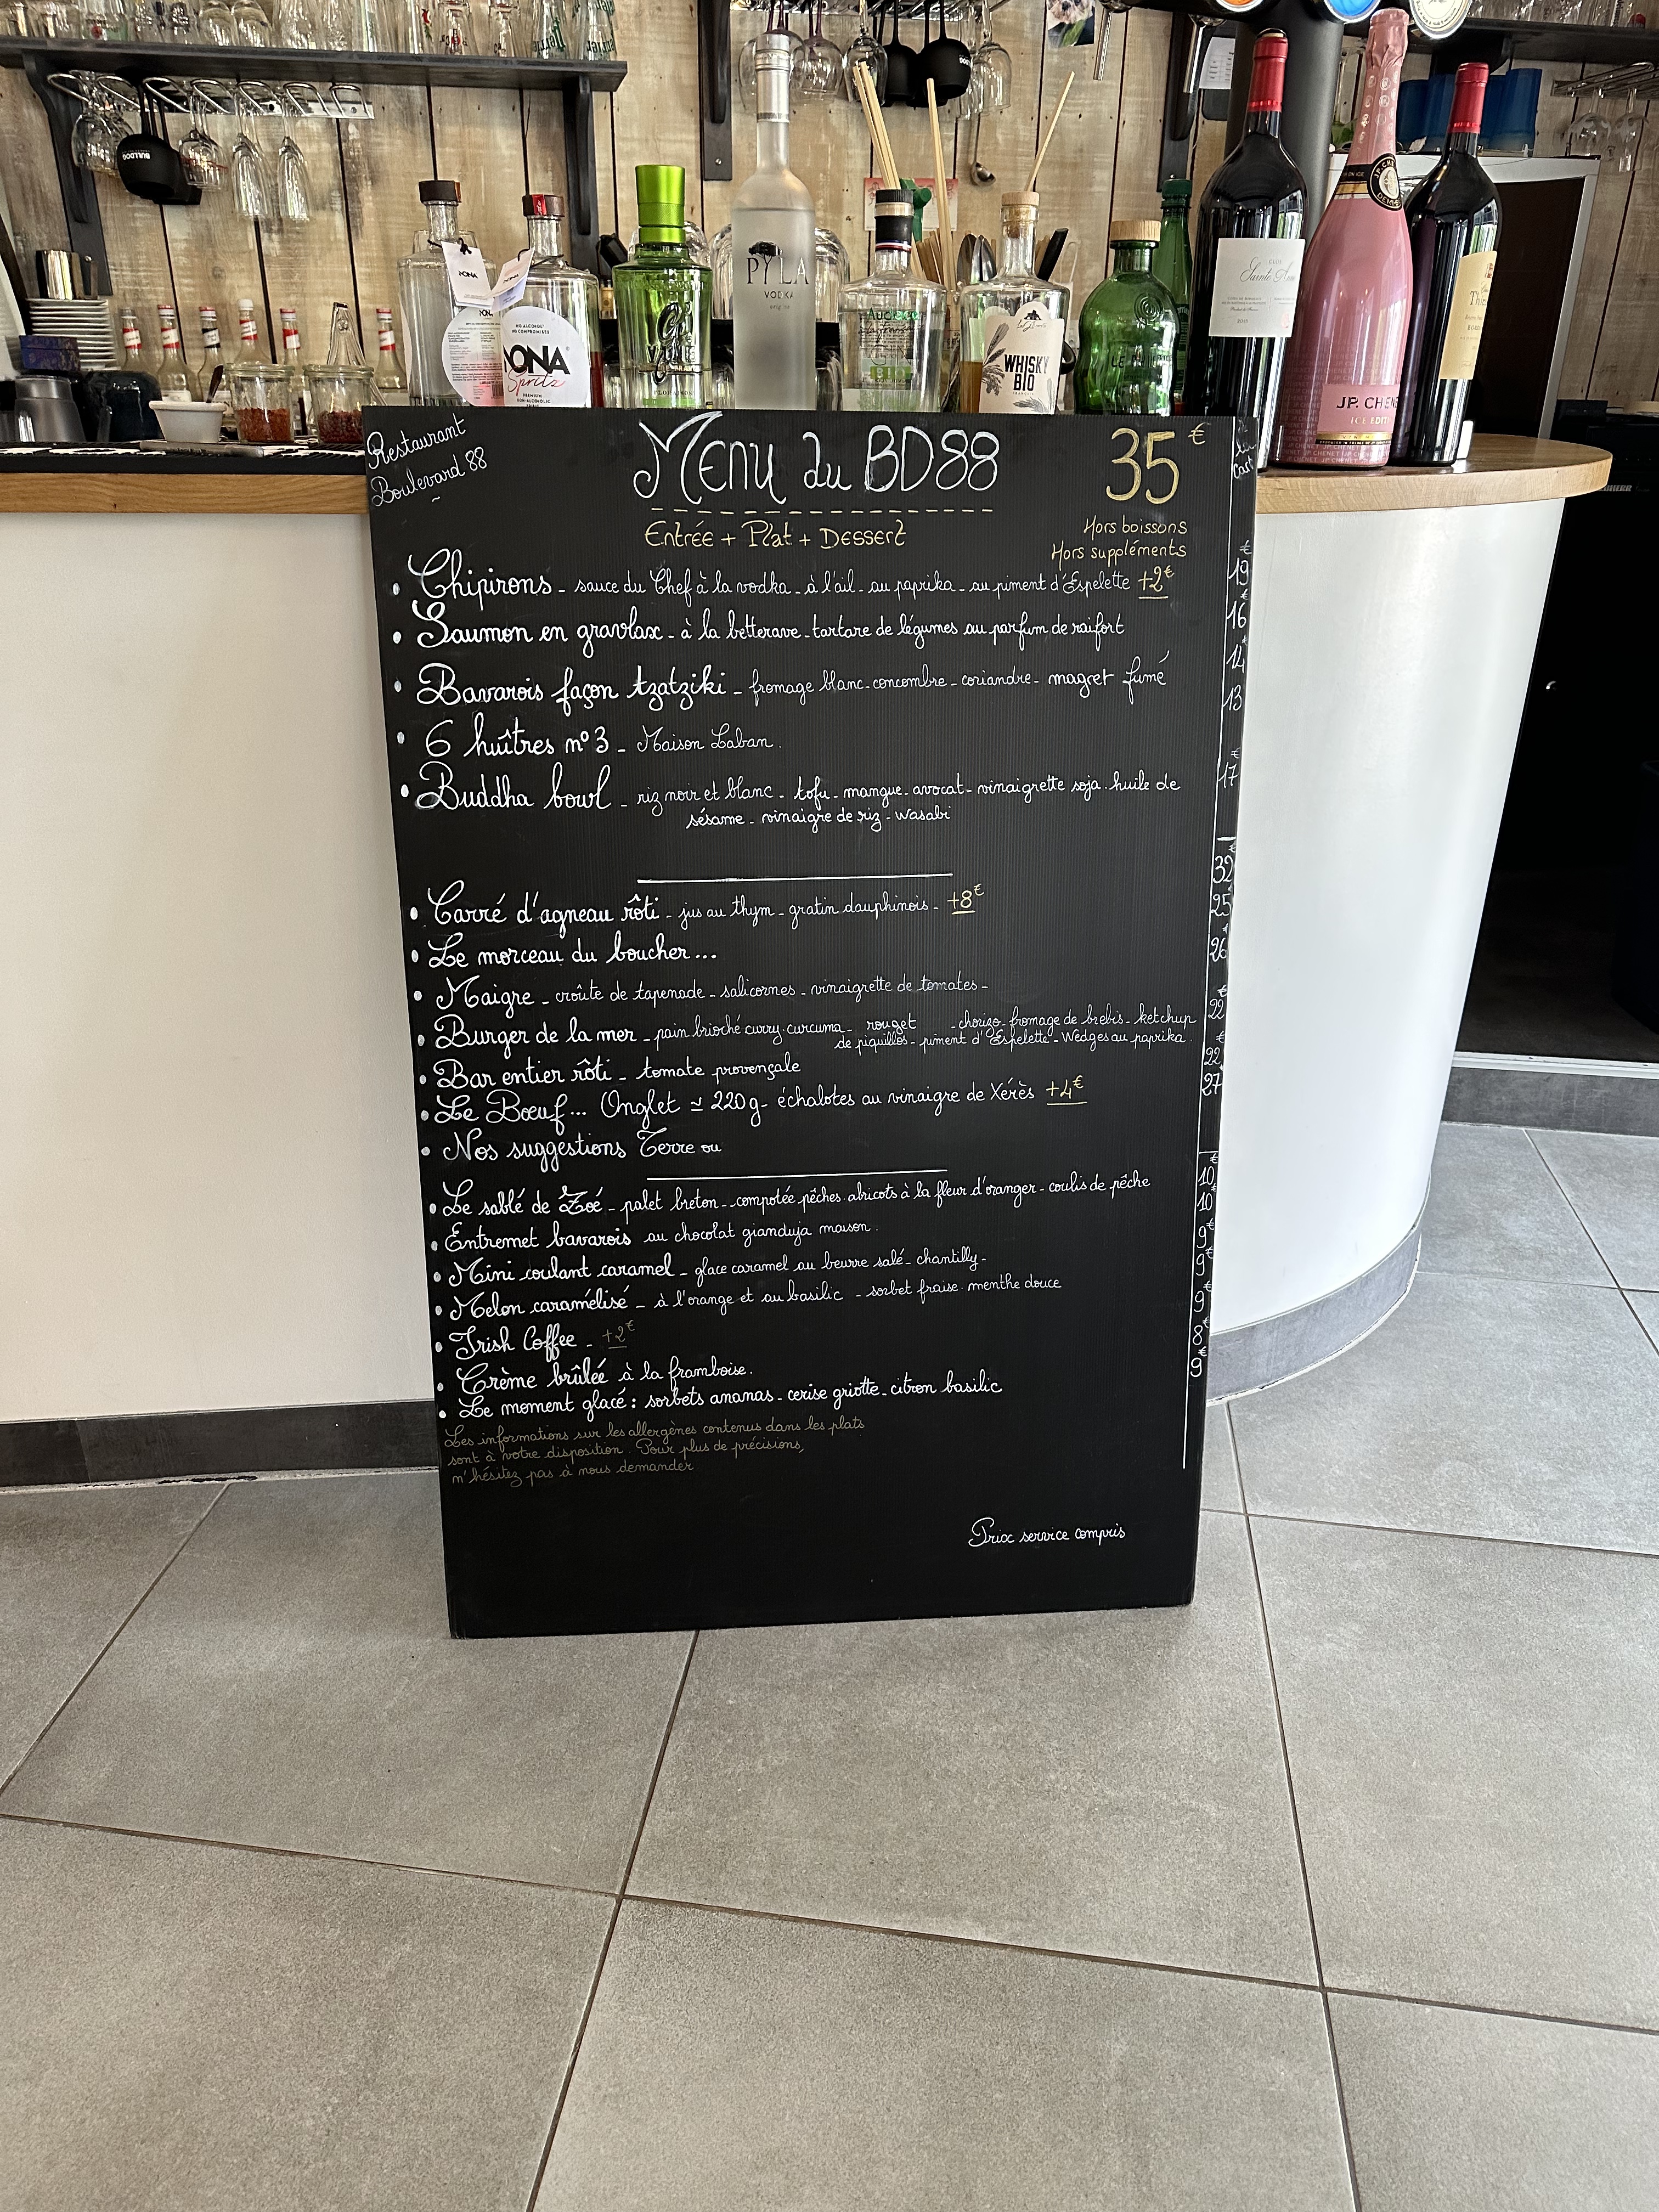 BULLDOG
PYLA
VODKA
NONA
NO ALCOHOL
NO COMPROMISES
NONA
Spritz
PREMIUM
NON-ALCOHOLIC
G'VINE
BIO
WHISKY
BIO
Clos
Sainte Anne
JP. CHENET
ICE EDITION
Restaurant
Boulevard 88
Menu du BD88
35€
à la carte
Entrée + Plat + Dessert
Hors boissons
Hors suppléments
• Chipirons - sauce du Chef à la vodka - à l'ail - au paprika - au piment d'Espelette +2€ 19€
• Saumon en gravlax - à la betterave - tartare de légumes au parfum de raifort 16
• Bavarois façon tzatziki - fromage blanc - concombre - coriandre - magret fumé 14€
• 6 huîtres n°3 - Maison Laban. 13
• Buddha bowl - riz noir et blanc - tofu - mangue - avocat - vinaigrette soja. huile de 17€
sésame - vinaigre de riz - wasabi
• Carré d'agneau rôti - jus au thym - gratin dauphinois - +8€ 32€
• Le morceau du boucher... 25€
• Maigre - croûte de tapenade - salicornes - vinaigrette de tomates - 26€
• Burger de la mer - pain brioché curry. curcuma - rouget - chorizo - fromage de brebis - ketchup 22€
de piquillos - piment d'Espelette - Wedges au paprika.
• Bar entier rôti - tomate provençale 22€
• Le Bœuf... Onglet ≃ 220g - échalotes au vinaigre de Xérès +4€ 27
• Nos suggestions Terre ou
• Le sablé de Zoé - palet breton - compotée pêches. abricots à la fleur d'oranger - coulis de pêche 10€
• Entremet bavarois au chocolat gianduja maison. 10€
• Mini coulant caramel - glace caramel au beurre salé - chantilly - 9€
• Melon caramélisé - à l'orange et au basilic - sorbet fraise. menthe douce 9€
• Irish Coffee - +2€ 9€
• Crème brûlée à la framboise. 8€
• Le moment glacé : sorbets ananas - cerise griotte - citron basilic 9€
Les informations sur les allergènes contenus dans les plats
sont à votre disposition. Pour plus de précisions,
n'hésitez pas à nous demander
Prix service compris